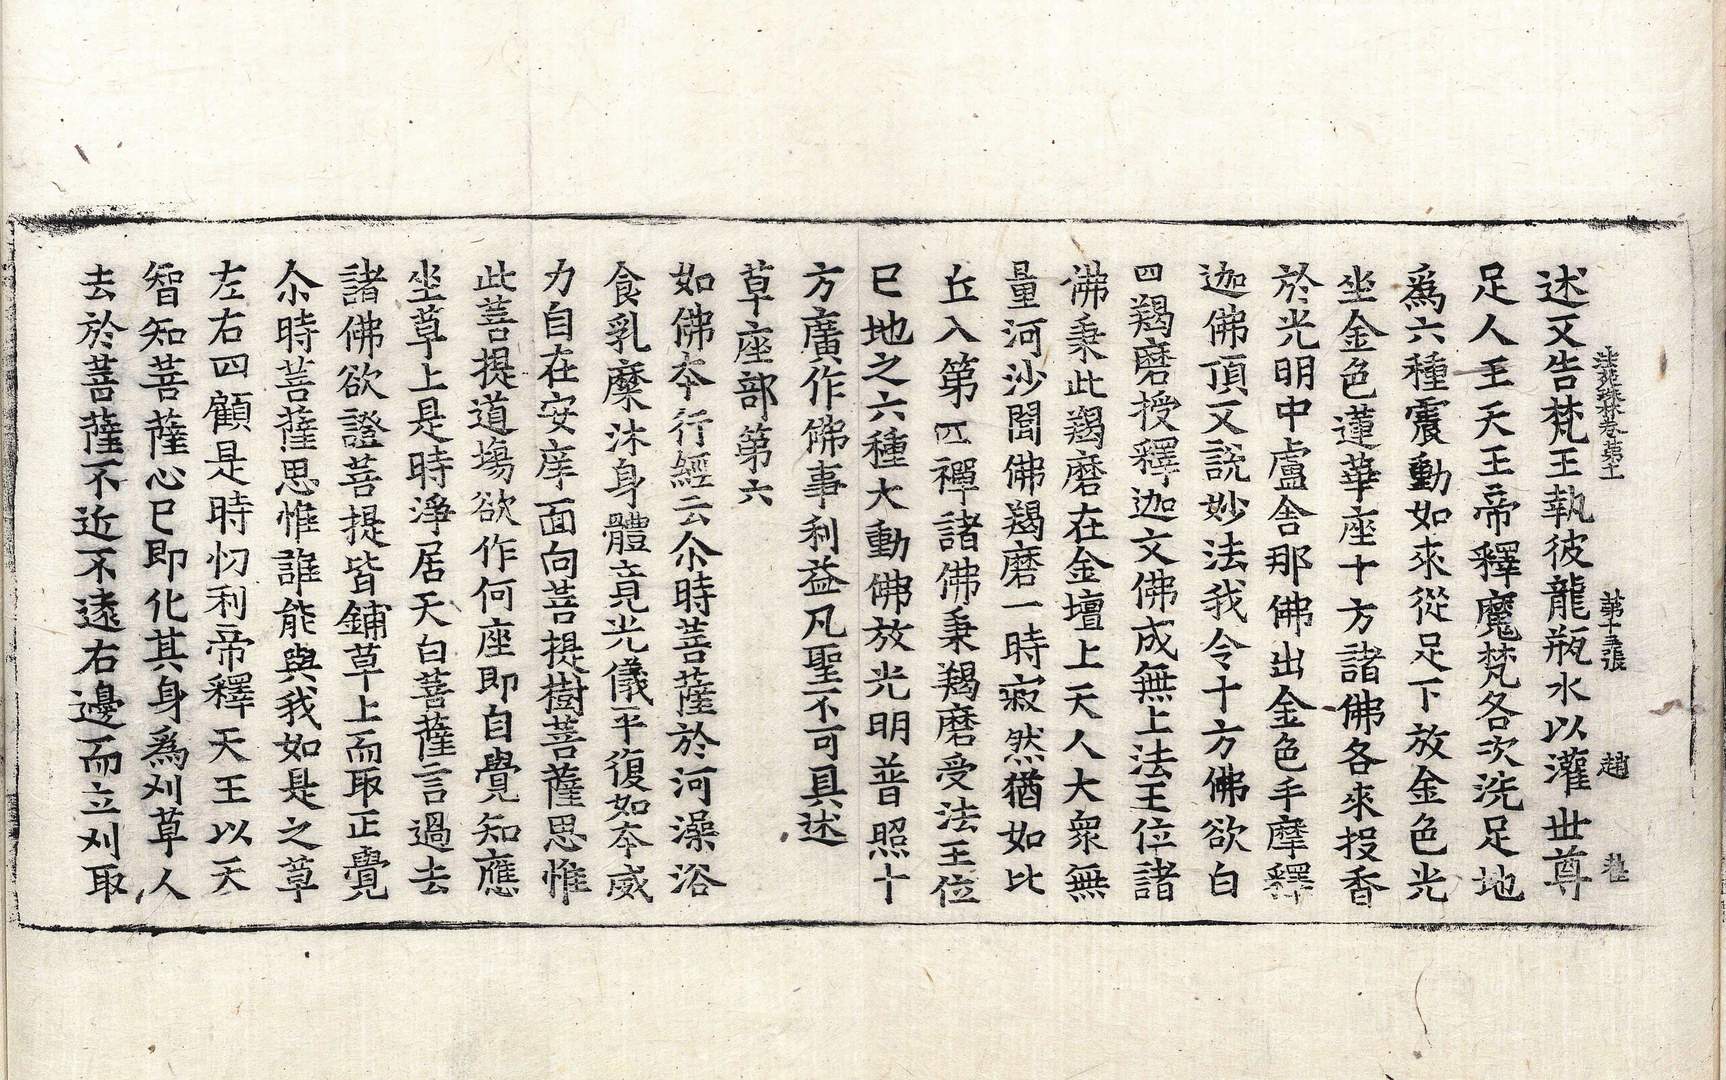 法苑珠林卷第十一 第十三張 趙
述又告梵王執彼龍瓶水以灌世尊
足人王天王帝釋魔梵各次洗足地
爲六種震動如來從足下放金色光
坐金色蓮華座十方諸佛各來投香
於光明中盧舍那佛出金色手摩釋
迦佛頂又說妙法我令十方佛欲白
四羯磨授釋迦文佛成無上法王位諸
佛秉此羯磨在金壇上天人大衆無
量河沙聞佛羯磨一時寂然猶如比
丘入第四禪諸佛秉羯磨受法王位
已地之六種大動佛放光明普照十
方廣作佛事利益凡聖不可具述
草座部第六
如佛本行經云尒時菩薩於河澡浴
食乳糜沐身體竟光儀平復如本威
力自在安庠面向菩提樹菩薩思惟
此菩提道場欲作何座即自覺知應
坐草上是時淨居天白菩薩言過去
諸佛欲證菩提皆鋪草上而取正覺
尒時菩薩思惟誰能與我如是之草
左右四顧是時忉利帝釋天王以天
智知菩薩心已即化其身爲刈草人
去於菩薩不近不遠右邊而立刈取